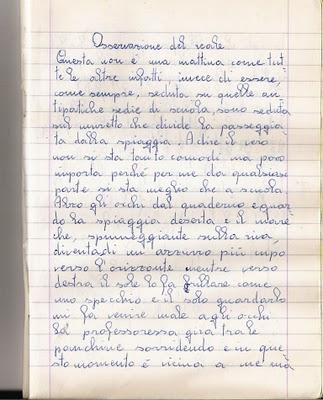 Osservazione del reale
Questa non è una mattina come tut-
te le altre infatti, invece di essere,
come sempre, seduta su quelle an-
tipatiche sedie di scuola, sono seduta
sul muretto che divide la passeggia-
ta dalla spiaggia. A dire il vero
non si sta tanto comodi ma poco
importa perché per me da qualsiasi
parte si sta meglio che a scuola.
Alzo gli occhi dal quaderno e guar-
do la spiaggia deserta e il mare
che, spumeggiante sulla riva,
diventa di un azzurro più cupo
verso l'orizzonte mentre verso
destra il sole lo fa brillare come
uno specchio e il solo guardarlo
mi fa venire male agli occhi
La professoressa gira tra le
panchine sorridendo e in que-
sto momento è vicina a me ma